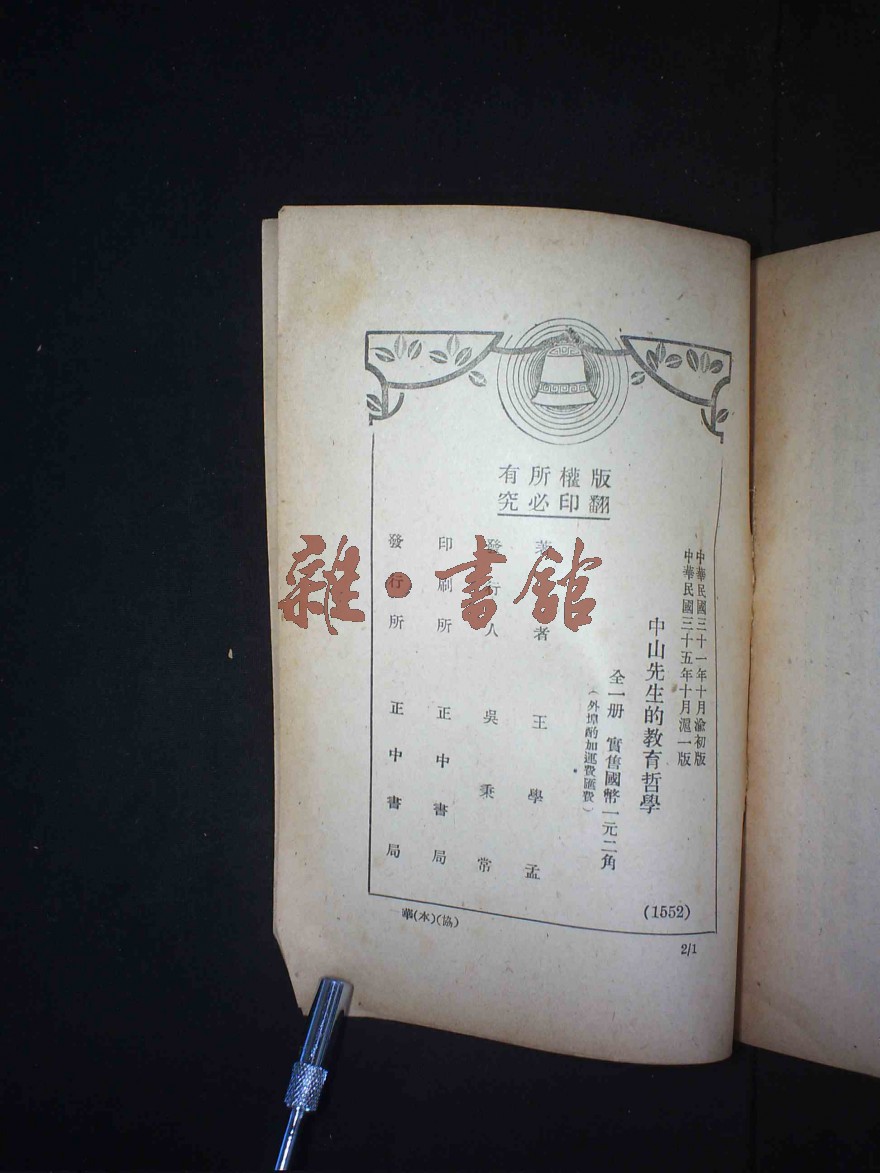 版權所有
翻印必究
中華民國三十一年十月渝初版
中華民國三十五年十月滬一版
中山先生的教育哲學
全一册 實售國幣一元二角
（外埠酌加運費匯費）
著者 王學孟
發行人 吳秉常
印刷所 正中書局
發行所 正中書局
(1552)
華(本)(協)
2/1
雜·書館